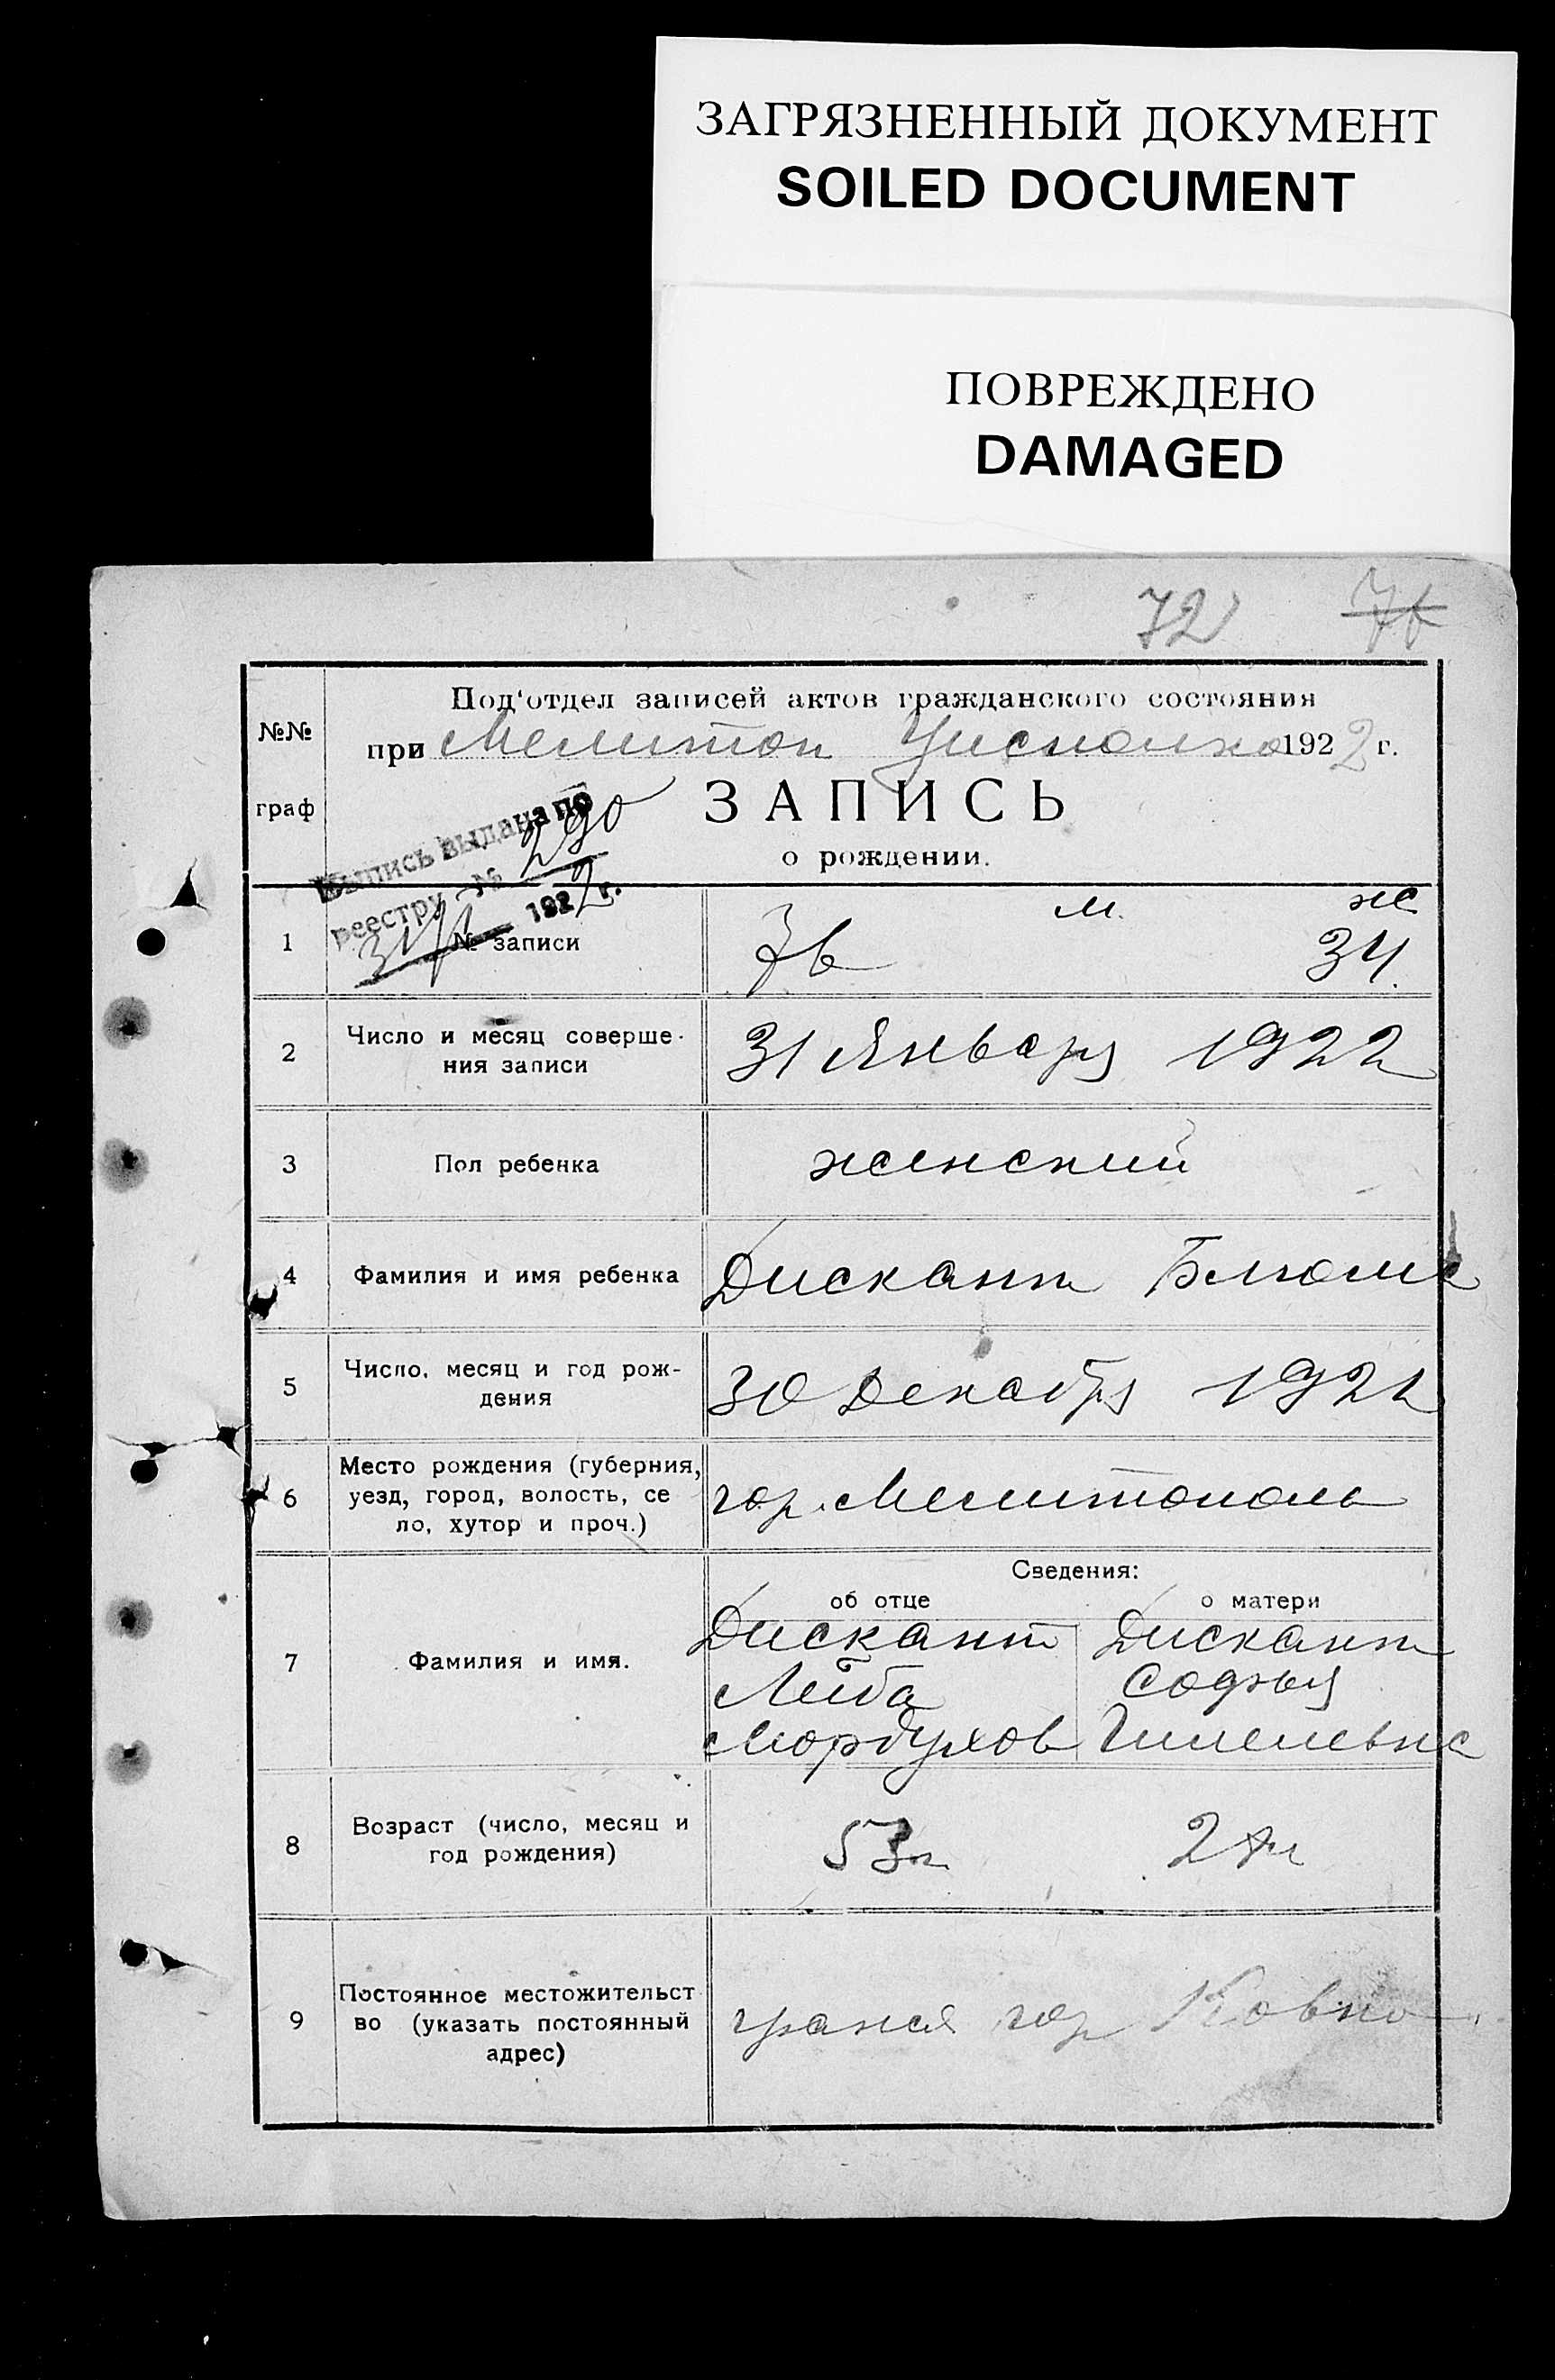 ЗАГРЯЗНЕННЫЙ ДОКУМЕНТ
SOILED DOCUMENT
ПОВРЕЖДЕНО
DAMAGED
72
№№
граф
Под'отдел записей актов гражданского состояния
при Мелитоп Уисполко 1922 г.
ЗАПИСЬ
о рождении.
Выпись выдана по
реестру № 290
31/1 1922 г.
1
№ записи
76 м. ж 34.
2
Число и месяц соверше-
ния записи
31 Января 1922
3
Пол ребенка
женский
4
Фамилия и имя ребенка
Дискант Блюма
5
Число, месяц и год рож-
дения
30 Декабря 1921
6
Место рождения (губерния,
уезд, город, волость, се
ло, хутор и проч.)
гор. Мелитополь
Сведения:
об отце
о матери
7
Фамилия и имя.
Дискант
Лейба
Мордухов
Дискант
Софья
Гилелевна
8
Возраст (число, месяц и
год рождения)
53 л
9
Постоянное местожительст
во (указать постоянный
адрес)
гор Ковно